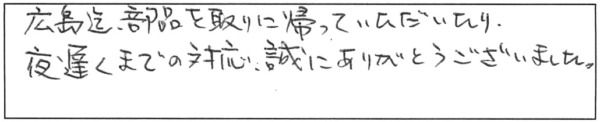 広島迄、部品を取りに帰っていただいたり、
夜遅くまでの対応、誠にありがとうございました。